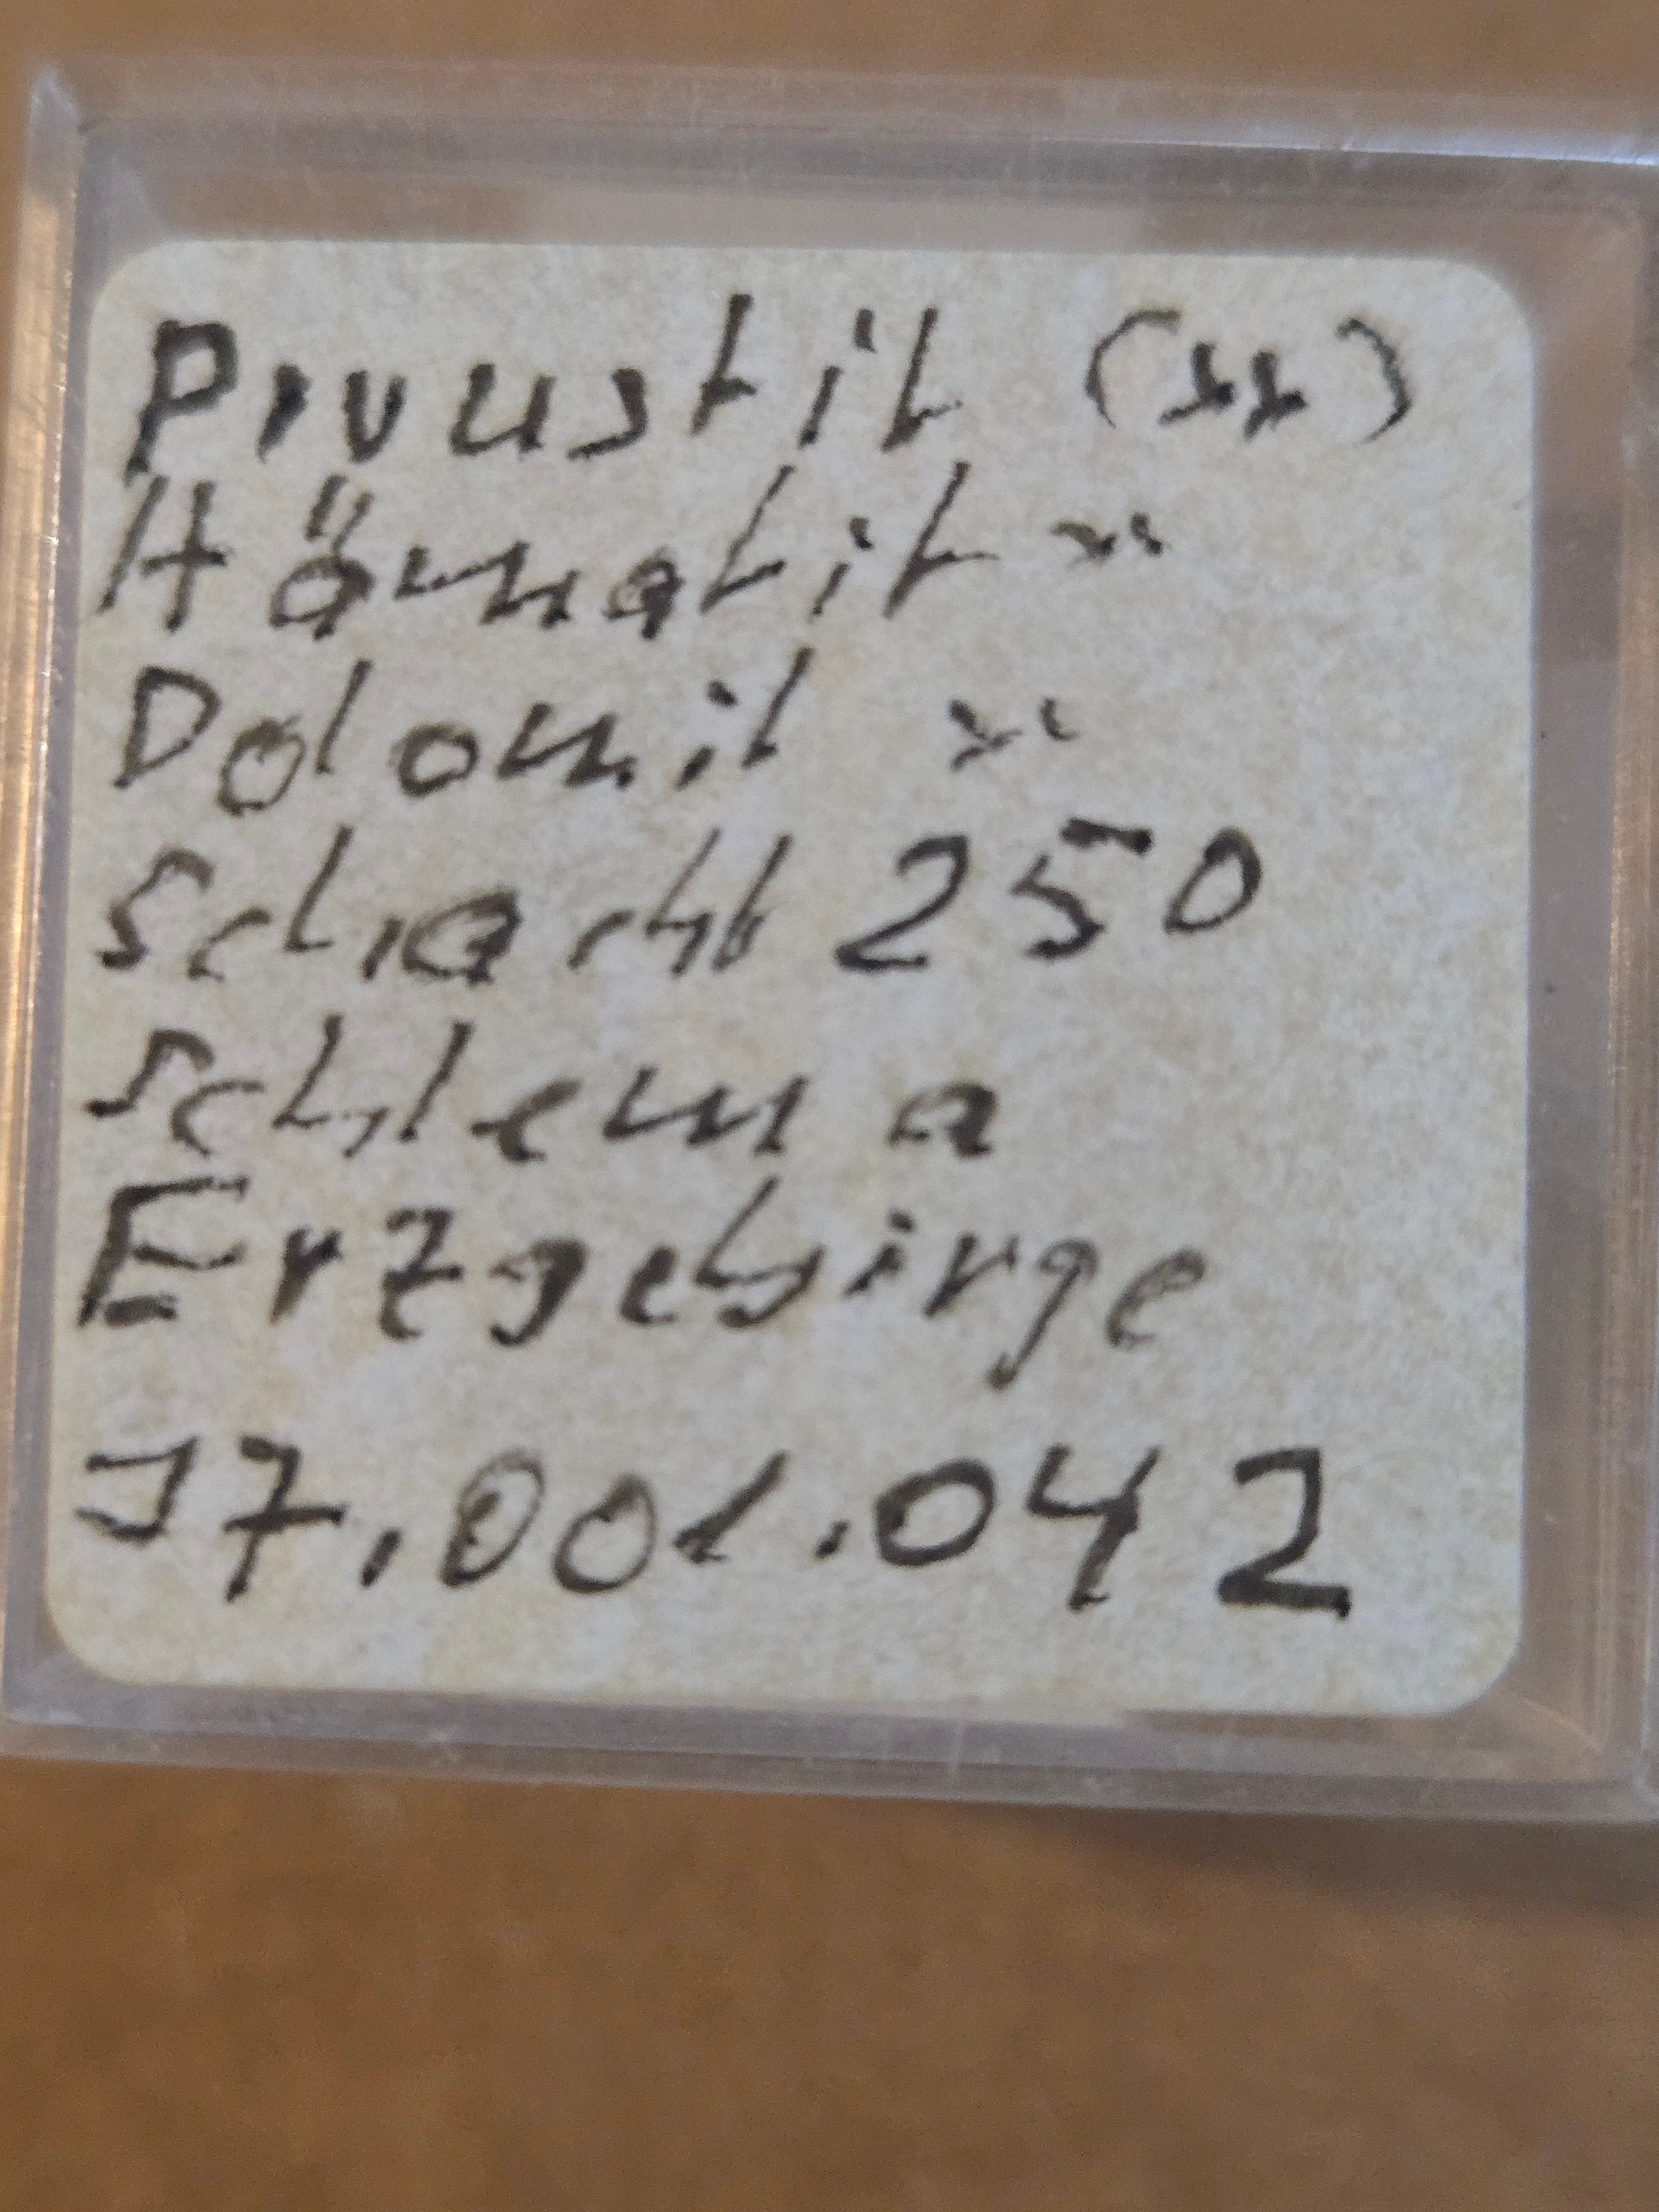 Proustit (xx)
Hämatit xx
Dolomit xx
Schacht 250
Schlema
Erzgebirge
17.001.042